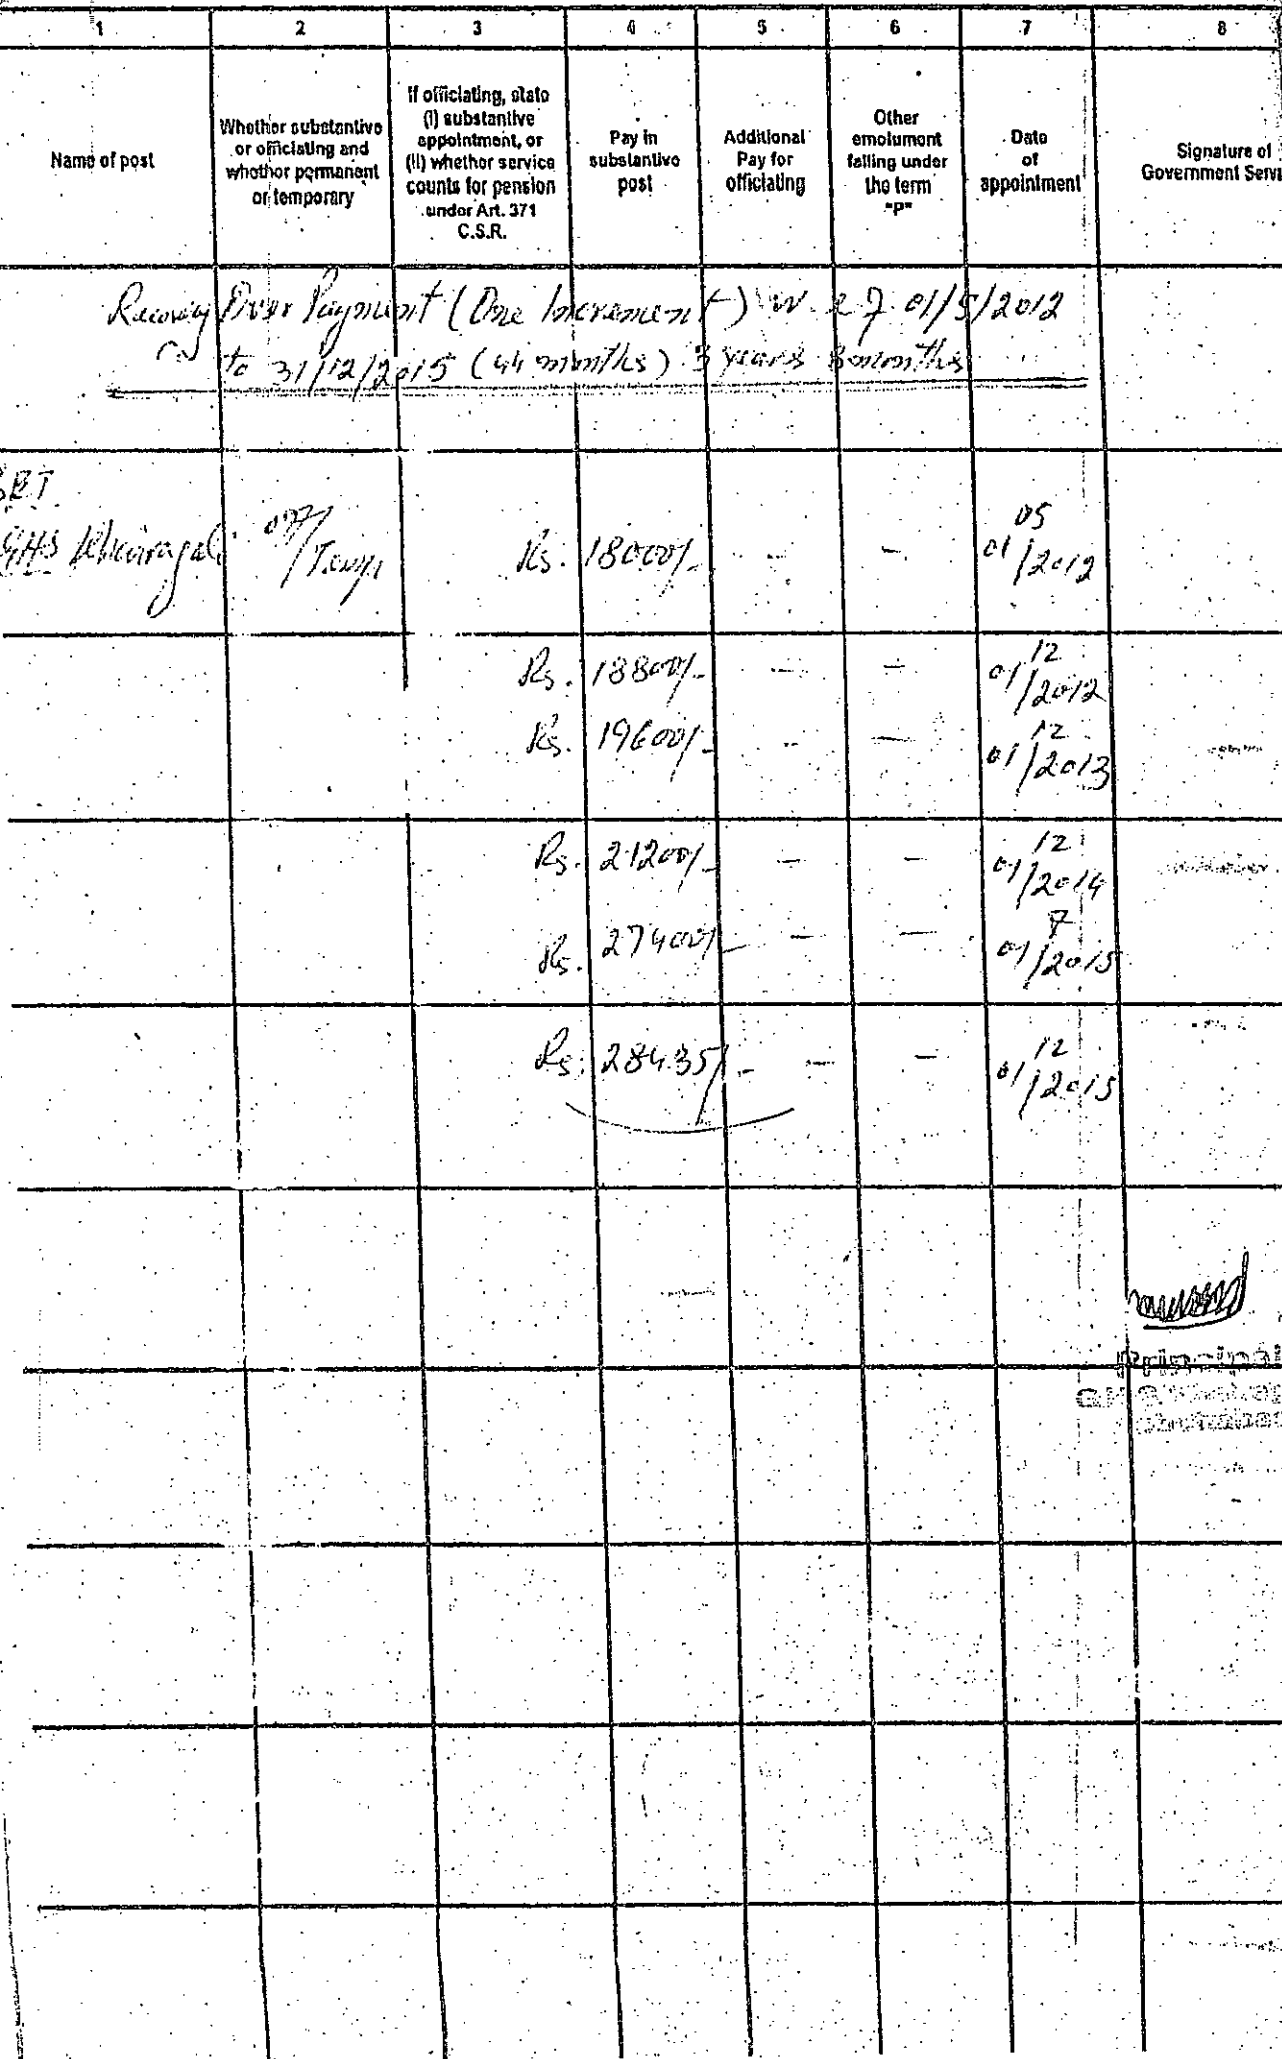 1 2 3 4 5 6 7 8
Name of post
Whether substantive or officiating and whether permanent or temporary
If officiating, state (i) substantive appointment, or (ii) whether service counts for pension under Art. 371 C.S.R.
Pay in substantive post
Additional Pay for officiating
Other emolument falling under the term "P"
Date of appointment
Signature of Government Serv
Recovery Over Payment (One Increment) w.e.f 01/5/2012
to 31/12/2015 (44 months) 3 years 8 months
GHS Temp Rs. 18000/- - - 01/05/2012
Rs. 18800/- - - 01/12/2012
Rs. 19600/- - - 01/12/2013
Rs. 21200/- - - 01/12/2014
Rs. 27400/- - - 01/7/2015
Rs. 28435/- - - 01/12/2015
Principal